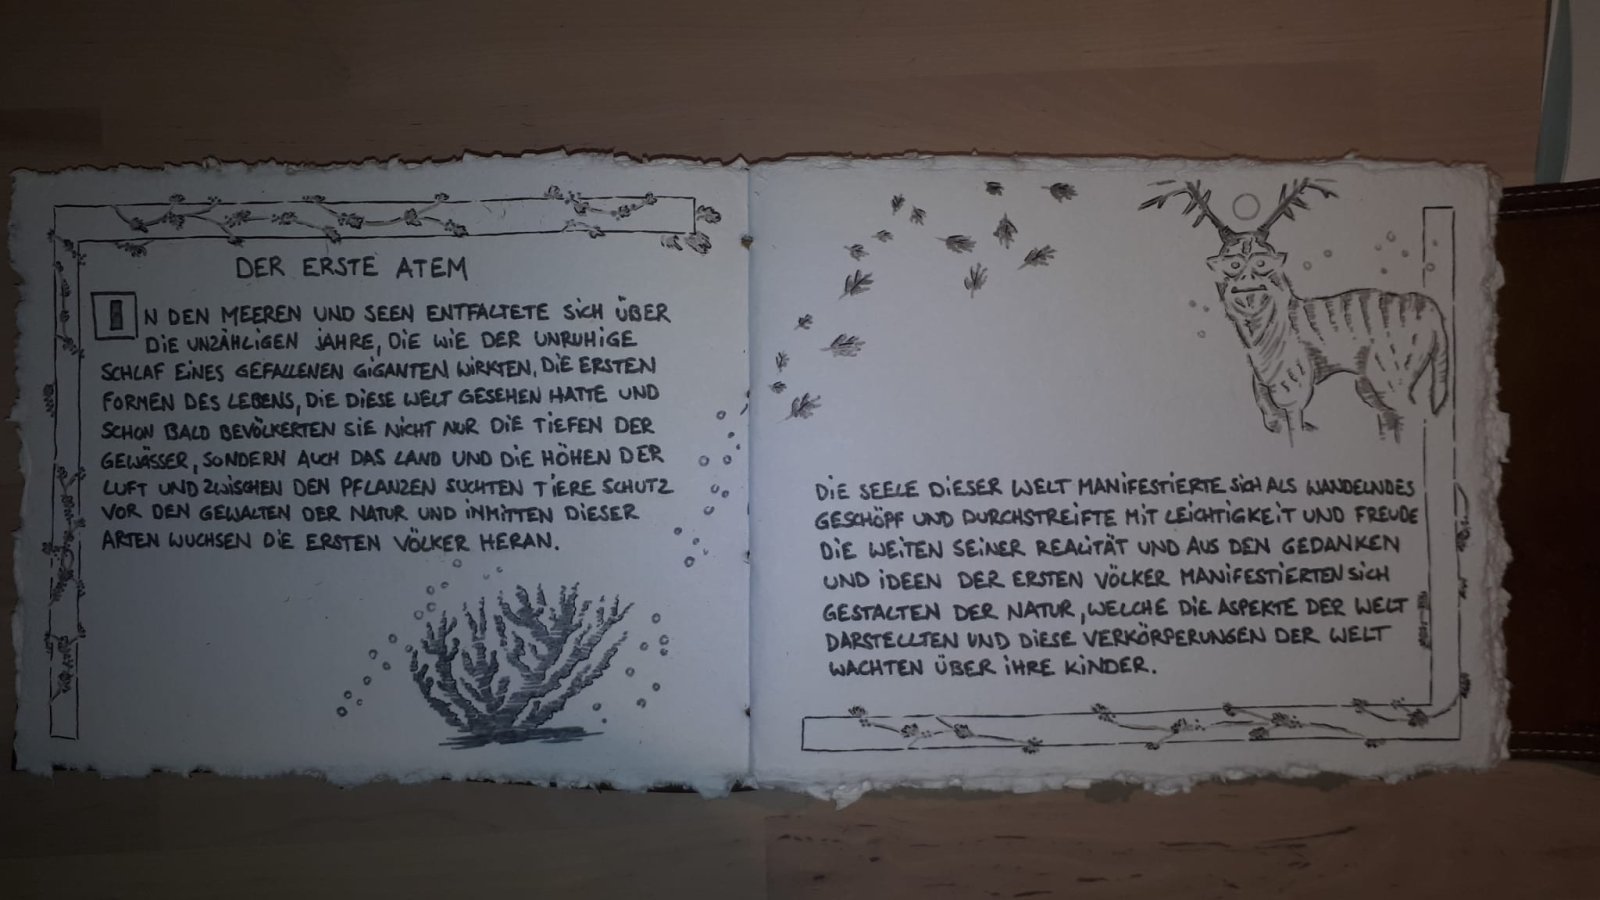 DER ERSTE ATEM
IN DEN MEEREN UND SEEN ENTFALTETE SICH ÜBER
DIE UNZÄHLIGEN JAHRE, DIE WIE DER UNRUHIGE
SCHLAF EINES GEFALLENEN GIGANTEN WIRKTEN, DIE ERSTEN
FORMEN DES LEBENS, DIE DIESE WELT GESEHEN HATTE UND
SCHON BALD BEVÖLKERTEN SIE NICHT NUR DIE TIEFEN DER
GEWÄSSER, SONDERN AUCH DAS LAND UND DIE HÖHEN DER
LUFT UND ZWISCHEN DEN PFLANZEN SUCHTEN TIERE SCHUTZ
VOR DEN GEWALTEN DER NATUR UND INMITTEN DIESER
ARTEN WUCHSEN DIE ERSTEN VÖLKER HERAN.
DIE SEELE DIESER WELT MANIFESTIERTE SICH ALS WANDELNDES
GESCHÖPF UND DURCHSTREIFTE MIT LEICHTIGKEIT UND FREUDE
DIE WEITEN SEINER REALITÄT UND AUS DEN GEDANKEN
UND IDEEN DER ERSTEN VÖLKER MANIFESTIERTEN SICH
GESTALTEN DER NATUR, WELCHE DIE ASPEKTE DER WELT
DARSTELLTEN UND DIESE VERKÖRPERUNGEN DER WELT
WACHTEN ÜBER IHRE KINDER.